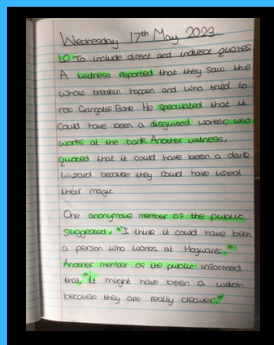 Wednesday 17th May 2023
LO To include direct and indirect quotes
A witness reported that they saw the
whole breakin happen and who tried to
rob Gringotts Bank. He speculated that it
could have been a disguised worker who
works at the bank. Another witness,
quoted that it could have been a dark
wizard because they could have used
their magic
One anonymous member of the public
suggested, "I think it could have been
a person who works at Hogwarts."
Another member of the public informed
that, "it might have been a witch
because they are really clever."